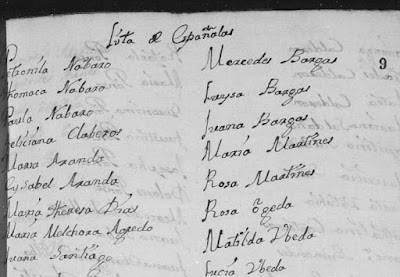 Lista de Españolas
9
Petronila Nabaro
Thomaca Nabaro
Paula Nabaro
Feliciana Claberos
Maria Aranda
Ysabel Aranda
Maria Theresa Dias
Maria Melchora Agredo
Juana Santiago
Mercedes Bargas
Luysa Bargas
Juana Bargas
Maria Martines
Rosa Martines
Rosa Ogeda
Matilda Ubeda
Lucia Ubeda